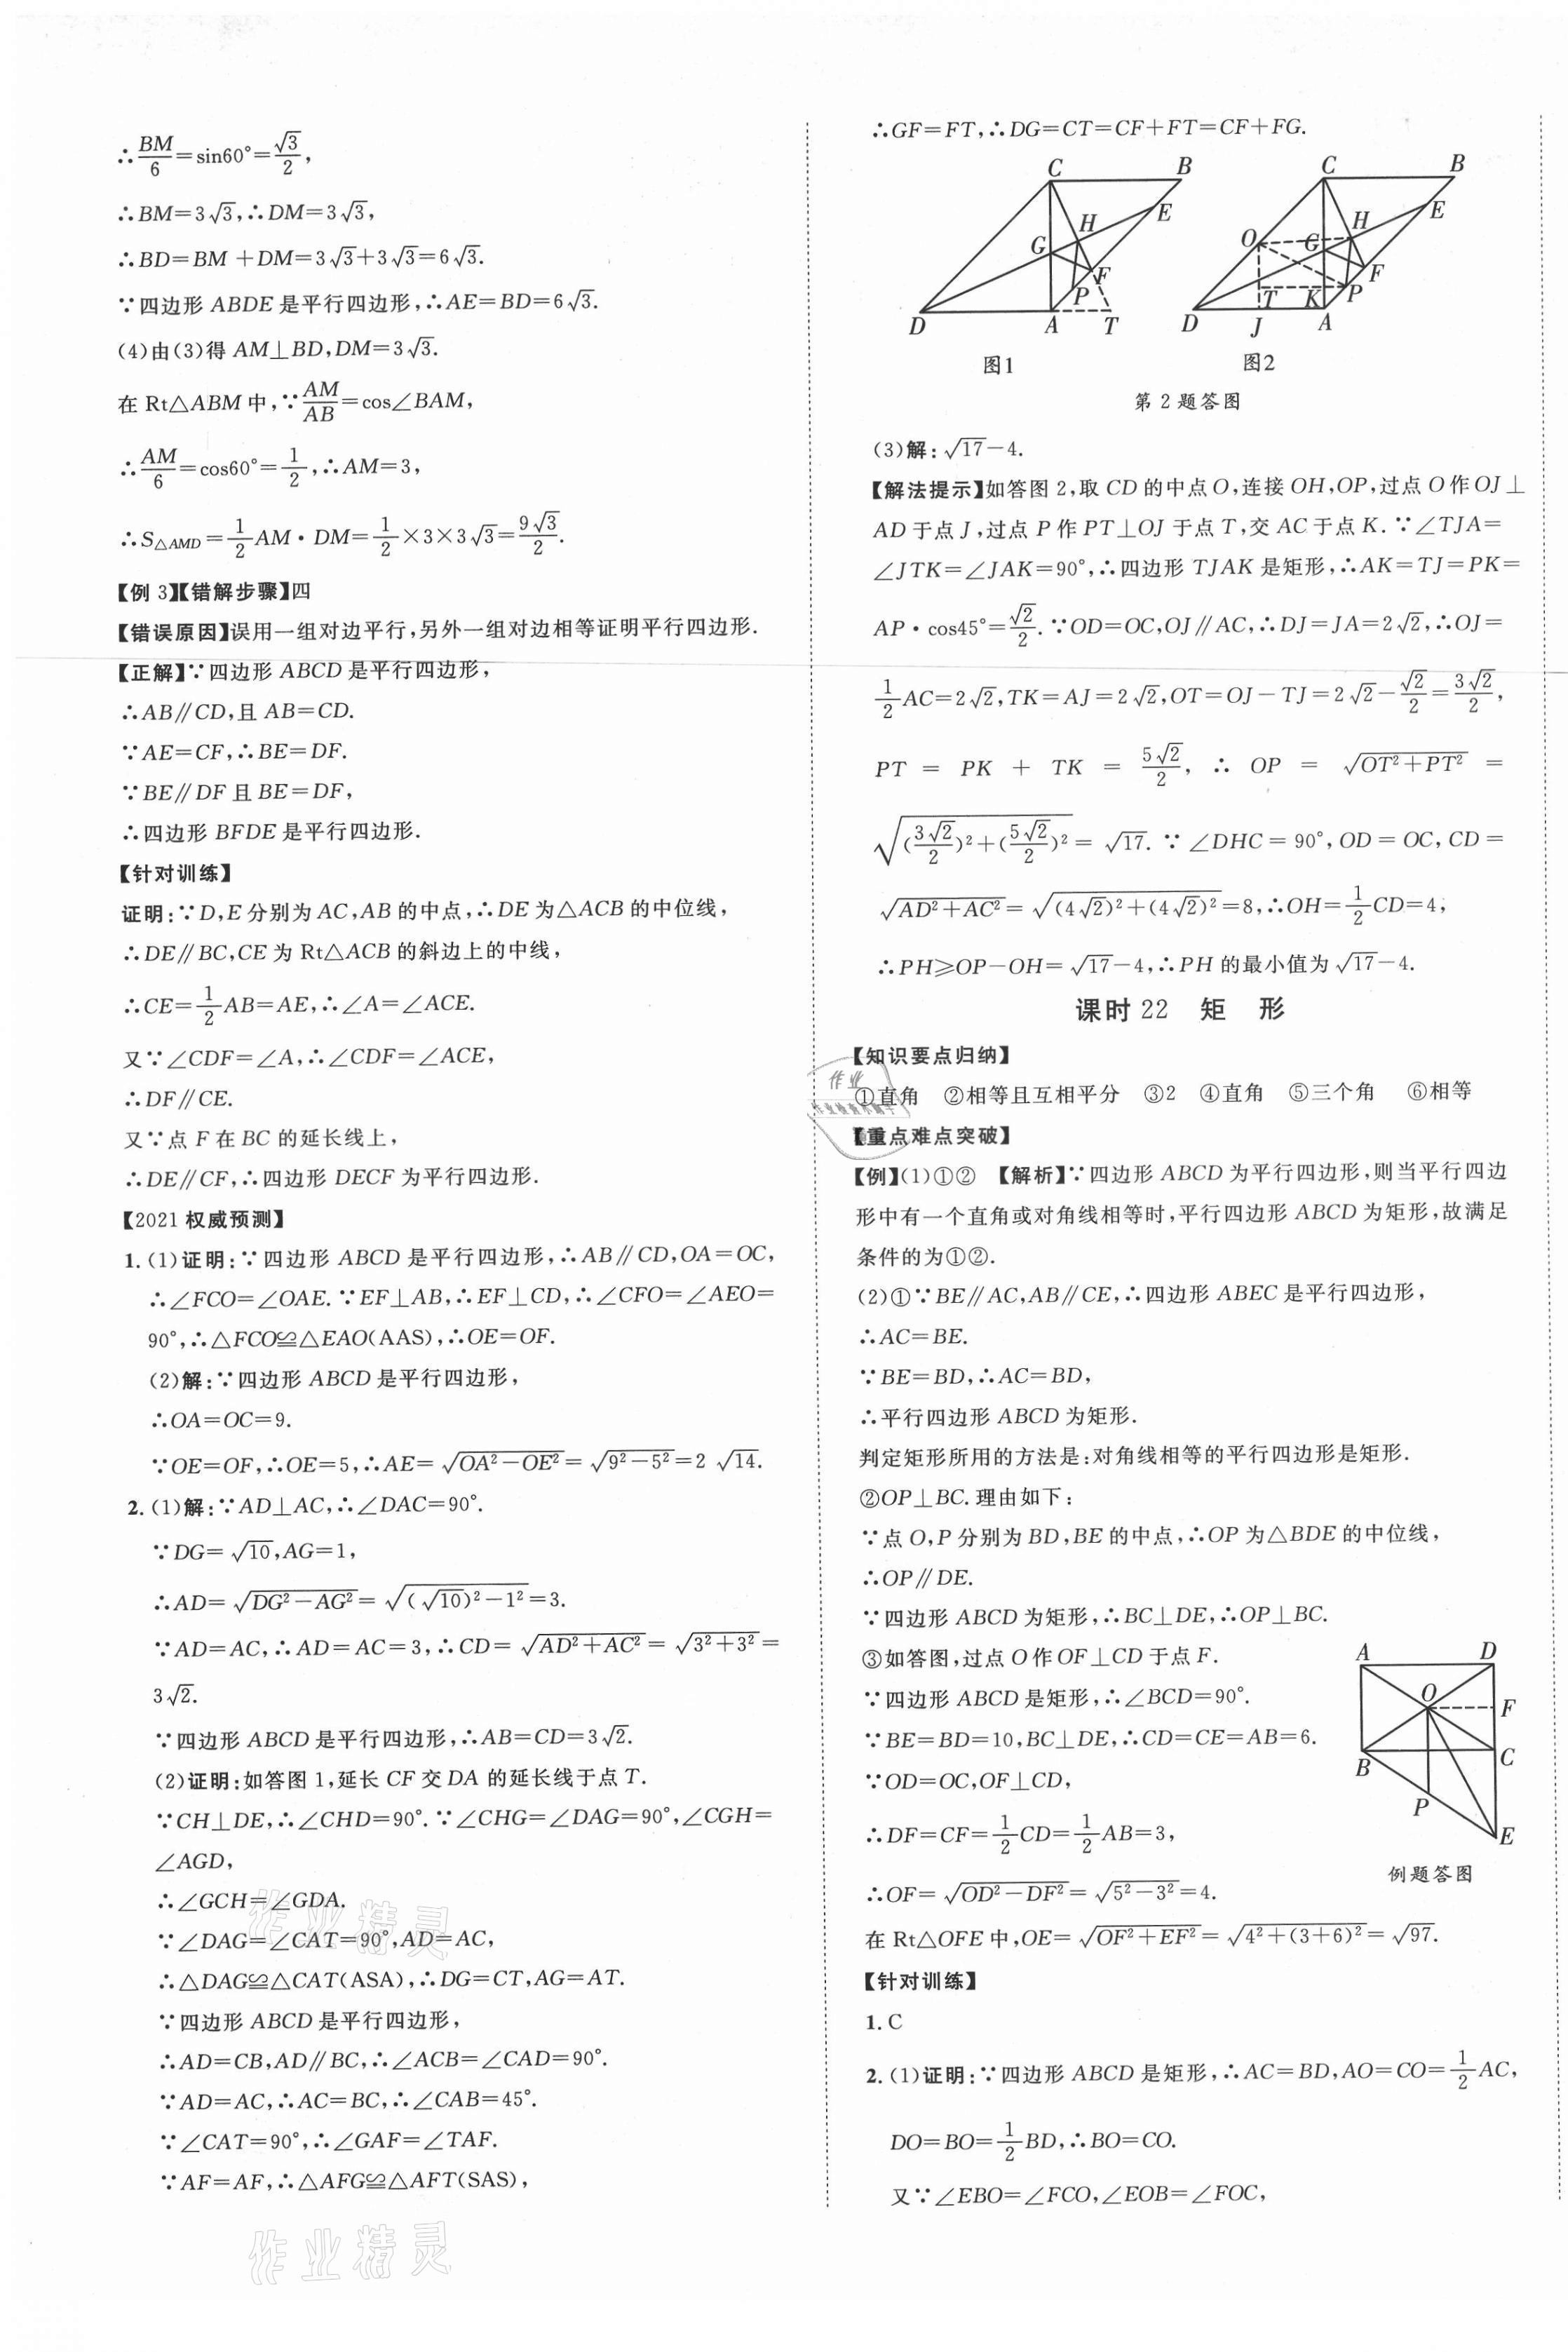 ∴BM/6=sin60°=√3/2,
∴BM=3√3,∴DM=3√3,
∴BD=BM+DM=3√3+3√3=6√3.
∵四边形 ABDE 是平行四边形,∴AE=BD=6√3.
(4)由(3)得 AM⊥BD,DM=3√3.
在 Rt△ABM 中,∵AM/AB=cos∠BAM,
∴AM/6=cos60°=1/2,∴AM=3,
∴S△AMD=1/2AM·DM=1/2×3×3√3=9√3/2.
【例 3】【错解步骤】四
【错误原因】误用一组对边平行,另外一组对边相等证明平行四边形.
【正解】∵四边形 ABCD 是平行四边形,
∴AB∥CD,且 AB=CD.
∵AE=CF,∴BE=DF.
∵BE∥DF 且 BE=DF,
∴四边形 BFDE 是平行四边形.
【针对训练】
证明:∵D,E 分别为 AC,AB 的中点,∴DE 为△ACB 的中位线,
∴DE∥BC,CE 为 Rt△ACB 的斜边上的中线,
∴CE=1/2AB=AE,∴∠A=∠ACE.
又∵∠CDF=∠A,∴∠CDF=∠ACE,
∴DF∥CE.
又∵点 F 在 BC 的延长线上,
∴DE∥CF,∴四边形 DECF 为平行四边形.
【2021 权威预测】
1.(1)证明:∵四边形 ABCD 是平行四边形,∴AB∥CD,OA=OC,
∴∠FCO=∠OAE.∵EF⊥AB,∴EF⊥CD,∴∠CFO=∠AEO=
90°,∴△FCO≌△EAO(AAS),∴OE=OF.
(2)解:∵四边形 ABCD 是平行四边形,
∴OA=OC=9.
∵OE=OF,∴OE=5,∴AE=√(OA²-OE²)=√(9²-5²)=2√14.
2.(1)解:∵AD⊥AC,∴∠DAC=90°.
∵DG=√10,AG=1,
∴AD=√(DG²-AG²)=√((√10)²-1²)=3.
∵AD=AC,∴AD=AC=3,∴CD=√(AD²+AC²)=√(3²+3²)=
3√2.
∵四边形 ABCD 是平行四边形,∴AB=CD=3√2.
(2)证明:如答图 1,延长 CF 交 DA 的延长线于点 T.
∵CH⊥DE,∴∠CHD=90°.∵∠CHG=∠DAG=90°,∠CGH=
∠AGD,
∴∠GCH=∠GDA.
∵∠DAG=∠CAT=90°,AD=AC,
∴△DAG≌△CAT(ASA),∴DG=CT,AG=AT.
∵四边形 ABCD 是平行四边形,
∴AD=CB,AD∥BC,∴∠ACB=∠CAD=90°.
∵AD=AC,∴AC=BC,∴∠CAB=45°.
∵∠CAT=90°,∴∠GAF=∠TAF.
∵AF=AF,∴△AFG≌△AFT(SAS),
作业精灵
作业精灵
∴GF=FT,∴DG=CT=CF+FT=CF+FG.
C B H E G F P D A T
图1
C B H E O G F T K P D J A
图2
第 2 题答图
(3)解:√17-4.
【解法提示】如答图 2,取 CD 的中点 O,连接 OH,OP,过点 O 作 OJ⊥
AD 于点 J,过点 P 作 PT⊥OJ 于点 T,交 AC 于点 K.∵∠TJA=
∠JTK=∠JAK=90°,∴四边形 TJAK 是矩形,∴AK=TJ=PK=
AP·cos45°=√2/2.∵OD=OC,OJ∥AC,∴DJ=JA=2√2,∴OJ=
1/2AC=2√2,TK=AJ=2√2,OT=OJ-TJ=2√2-√2/2=3√2/2,
PT=PK+TK=5√2/2,∴OP=√(OT²+PT²)=
√((3√2/2)²+(5√2/2)²)=√17.∵∠DHC=90°,OD=OC,CD=
√(AD²+AC²)=√((4√2)²+(4√2)²)=8,∴OH=1/2CD=4,
∴PH≥OP-OH=√17-4,∴PH 的最小值为√17-4.
课时 22 矩 形
【知识要点归纳】
①直角 ②相等且互相平分 ③2 ④直角 ⑤三个角 ⑥相等
【重点难点突破】
【例】(1)①② 【解析】∵四边形 ABCD 为平行四边形,则当平行四边
形中有一个直角或对角线相等时,平行四边形 ABCD 为矩形,故满足
条件的为①②.
(2)①∵BE∥AC,AB∥CE,∴四边形 ABEC 是平行四边形,
∴AC=BE.
∵BE=BD,∴AC=BD,
∴平行四边形 ABCD 为矩形.
判定矩形所用的方法是:对角线相等的平行四边形是矩形.
②OP⊥BC.理由如下:
∵点 O,P 分别为 BD,BE 的中点,∴OP 为△BDE 的中位线,
∴OP∥DE.
∵四边形 ABCD 为矩形,∴BC⊥DE,∴OP⊥BC.
③如答图,过点 O 作 OF⊥CD 于点 F.
∵四边形 ABCD 是矩形,∴∠BCD=90°.
∵BE=BD=10,BC⊥DE,∴CD=CE=AB=6.
∵OD=OC,OF⊥CD,
∴DF=CF=1/2CD=1/2AB=3,
∴OF=√(OD²-DF²)=√(5²-3²)=4.
A D O F B C P E
例题答图
在 Rt△OFE 中,OE=√(OF²+EF²)=√(4²+(3+6)²)=√97.
【针对训练】
1.C
2.(1)证明:∵四边形 ABCD 是矩形,∴AC=BD,AO=CO=1/2AC,
DO=BO=1/2BD,∴BO=CO.
又∵∠EBO=∠FCO,∠EOB=∠FOC,
作业